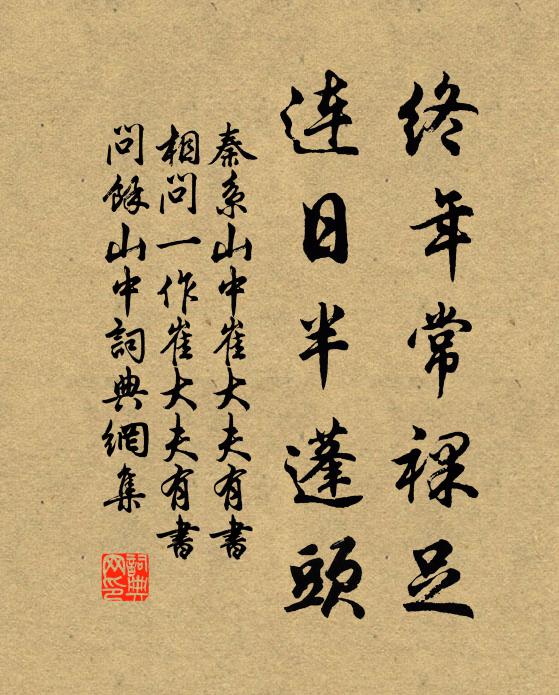 终年常裸足
连日半蓬頭
秦系山中崔大夫有書
相問一作崔大夫有書
問餘山中詞典網集
詞典
网印